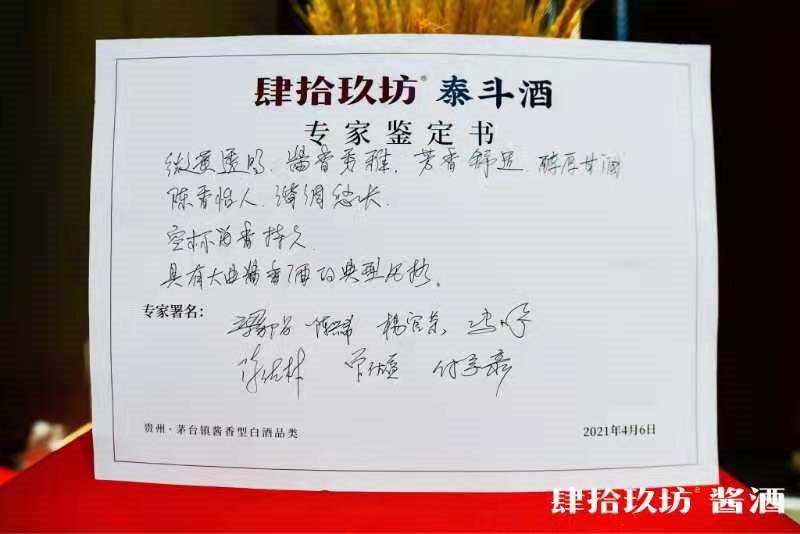 肆拾玖坊® 泰斗酒
专家鉴定书
微黄透明、酱香秀雅、芳香舒适、醇厚甘润
陈香怡人、绵绸悠长、
空杯留香持久
具有大曲酱香酒的典型风格。
专家署名：
杨官东
贵州·茅台镇酱香型白酒品类
2021年4月6日
肆拾玖坊® 酱酒